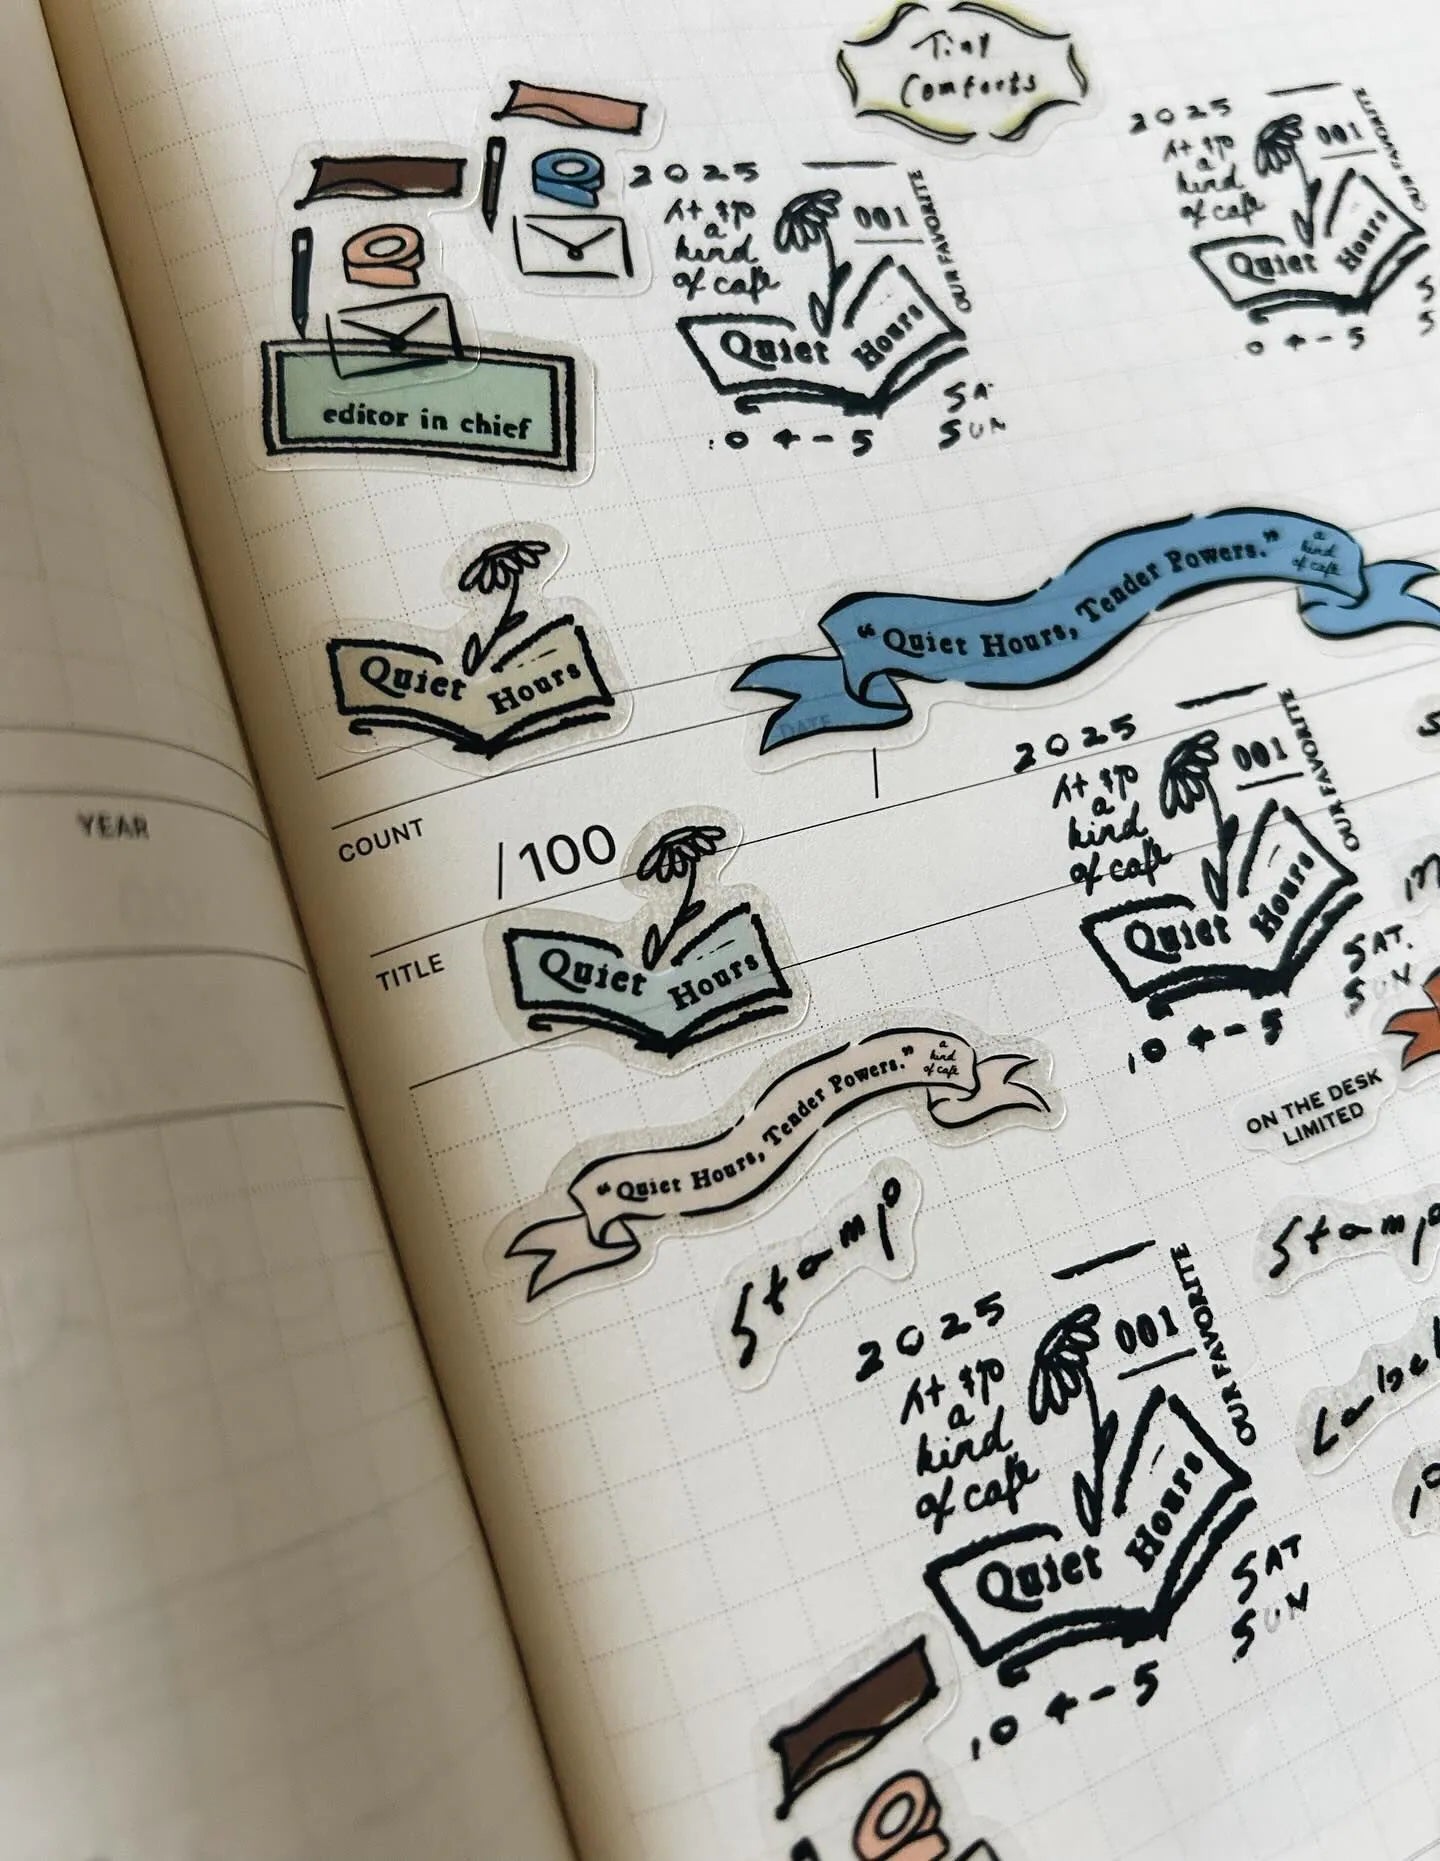 Tiny
Comforts
2025
At
a
kind
of cafe
001
OUR FAVORITE
Quiet Hours
SUN
4-5
2025
At
a
kind
of cafe
001
OUR FAVORITE
Quiet Hours
4-5
editor in chief
Quiet Hours
"Quiet Hours, Tender Powers."
a
kind
of cafe
DATE
YEAR
COUNT
/100
TITLE
Quiet Hours
2025
At
a
kind
of cafe
001
OUR FAVORITE
Quiet Hours
SAT.
SUN
10 4-5
"Quiet Hours, Tender Powers."
a
kind
of cafe
ON THE DESK
LIMITED
Stamp
Stamp
2025
At
a
kind
of cafe
001
OUR FAVORITE
Quiet Hours
SAT
SUN
10 4-5
Label